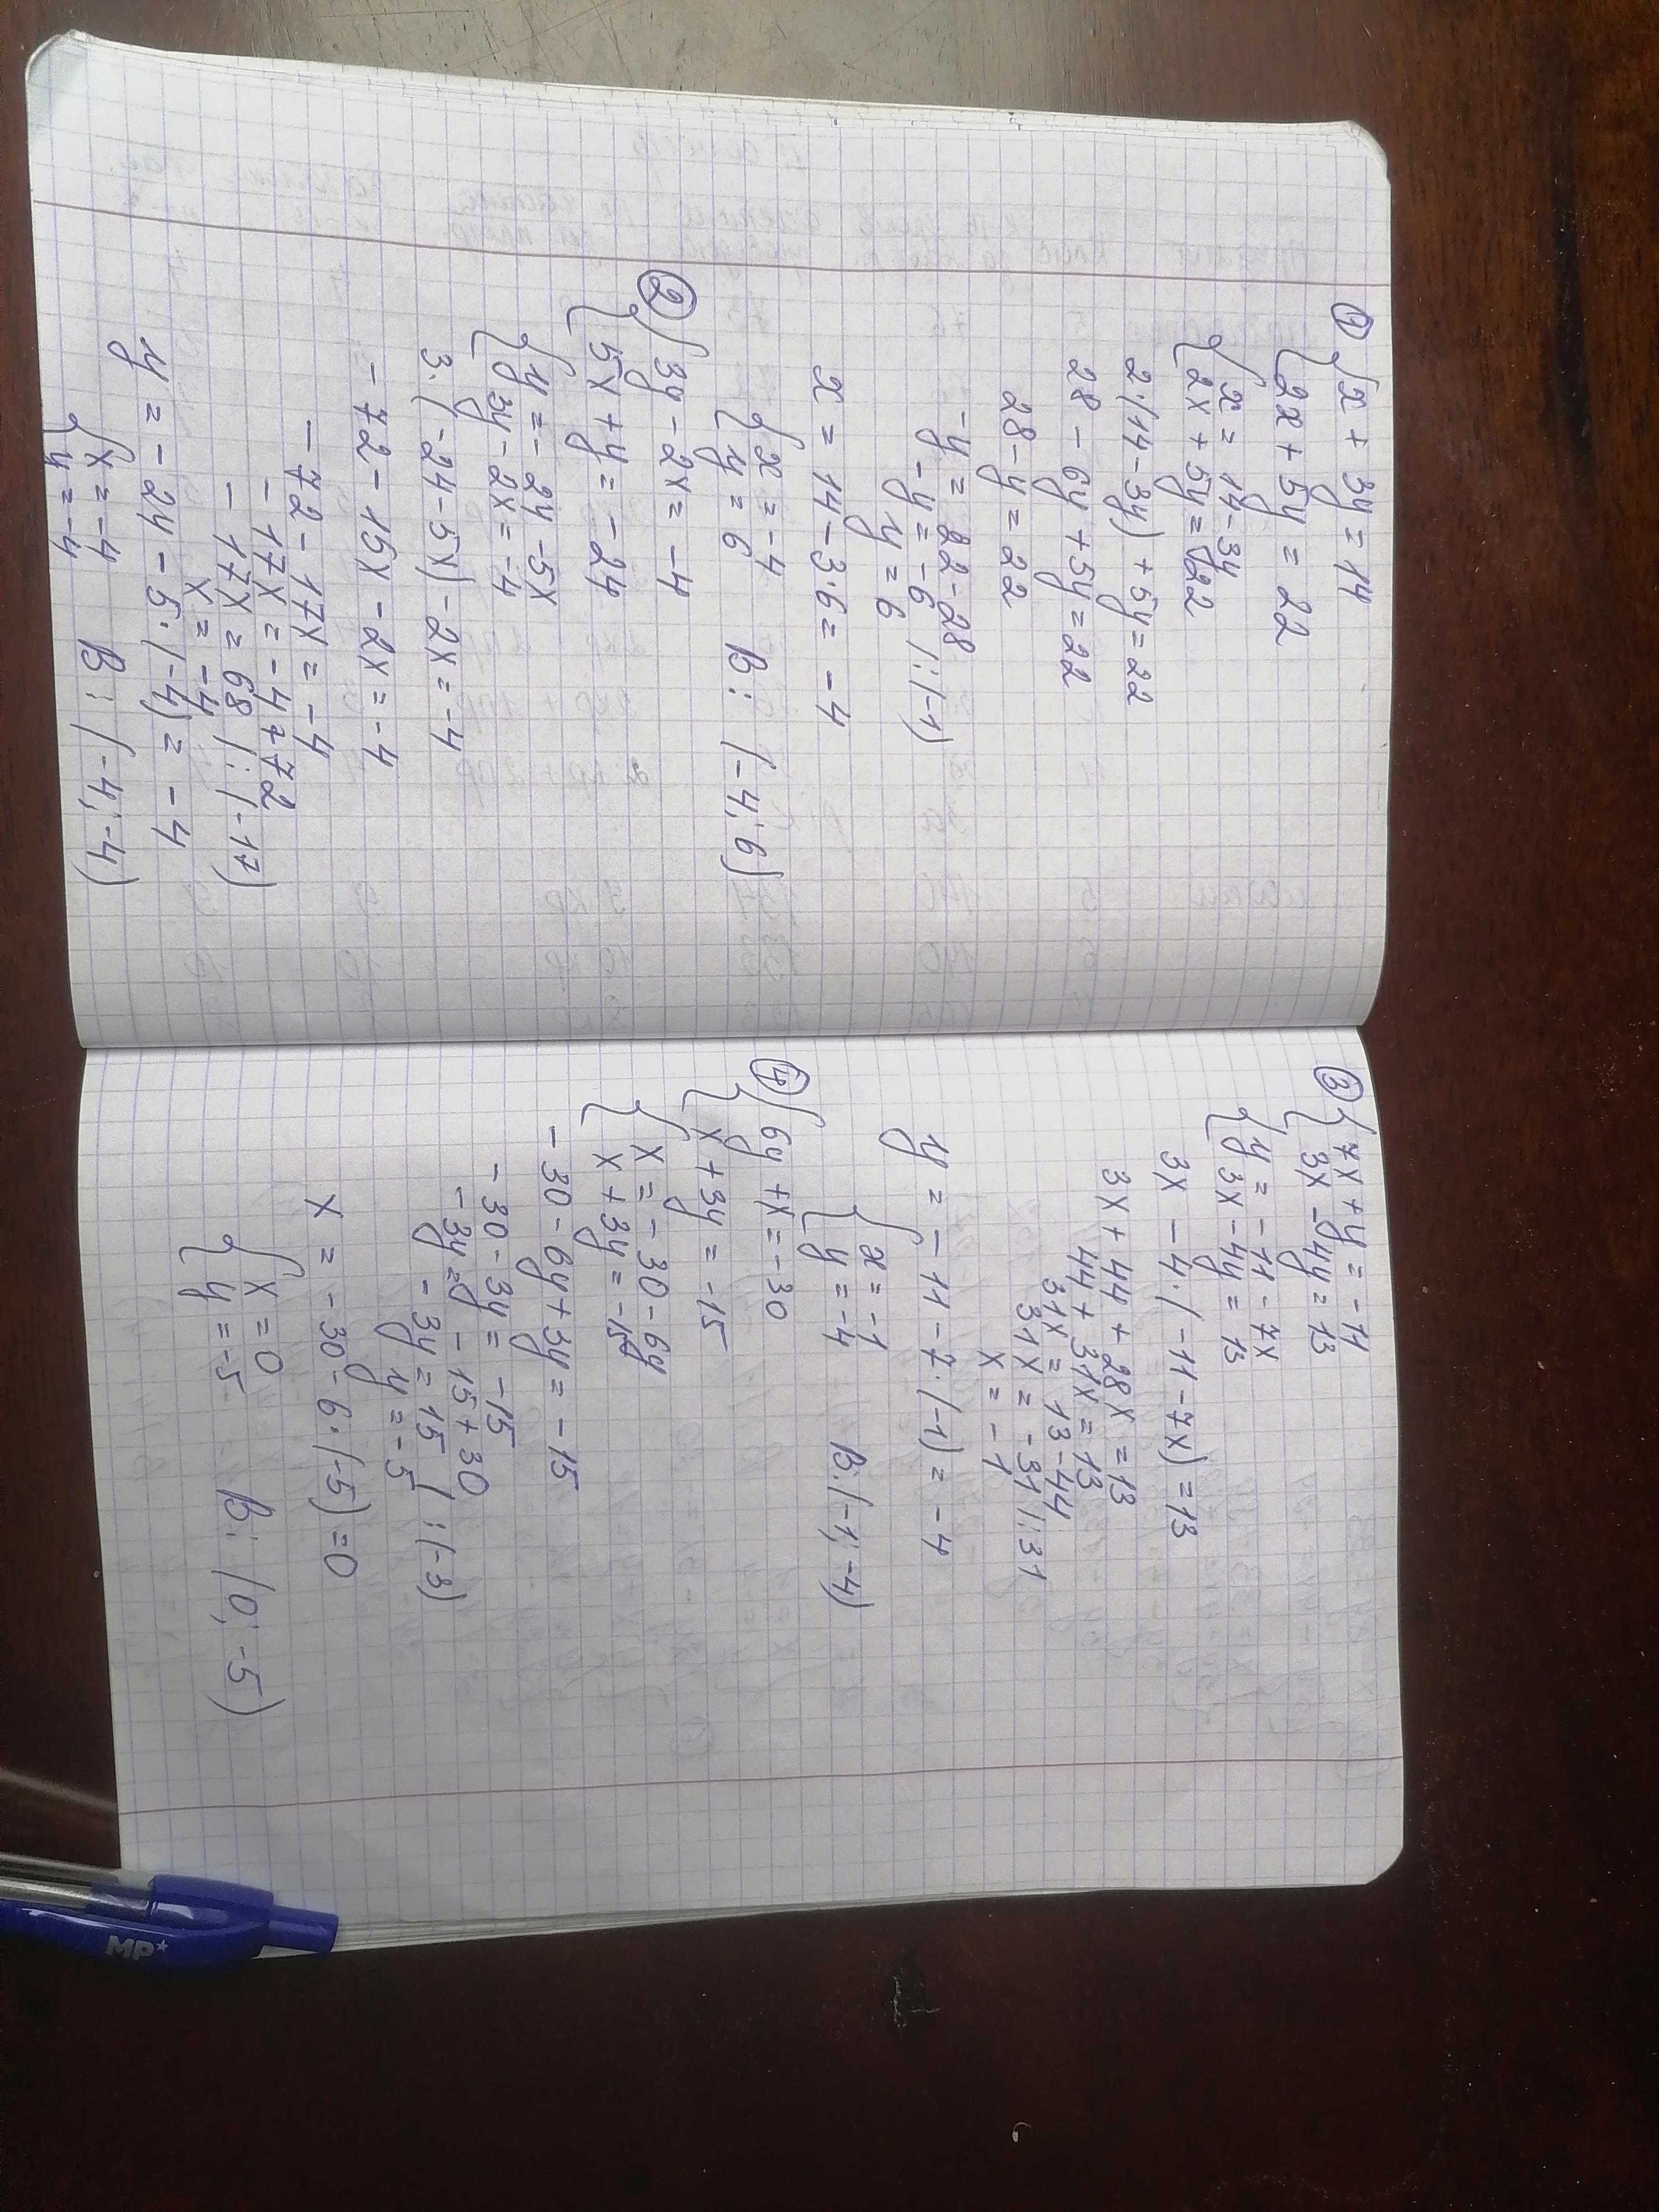 1 { x + 3y = 14
2x + 5y = 22
{ x = 14 - 3y
2x + 5y = 22
2·(14-3y) + 5y = 22
28 - 6y + 5y = 22
28 - y = 22
-y = 22 - 28
-y = -6 |:(-1)
y = 6
x = 14 - 3·6 = -4
{ x = -4
y = 6 В: (-4; 6)
2 { 3y - 2x = -4
5x + y = -24
{ y = -24 - 5x
3y - 2x = -4
3·(-24-5x) - 2x = -4
-72 - 15x - 2x = -4
-72 - 17x = -4
-17x = -4 + 72
-17x = 68 |:(-17)
x = -4
y = -24 - 5·(-4) = -4
{ x = -4
y = -4 В: (-4; -4)
3 { 7x + y = -11
3x - 4y = 13
{ y = -11 - 7x
3x - 4y = 13
3x - 4·(-11 - 7x) = 13
3x + 44 + 28x = 13
44 + 31x = 13
31x = 13 - 44
31x = -31 |:31
x = -1
y = -11 - 7·(-1) = -4
{ x = -1
y = -4 В: (-1; -4)
4 { 6y + x = -30
x + 3y = -15
{ x = -30 - 6y
x + 3y = -15
-30 - 6y + 3y = -15
-30 - 3y = -15
-3y = -15 + 30
-3y = 15 | :(-3)
y = -5
x = -30 - 6·(-5) = 0
{ x = 0
y = -5 В: (0; -5)
MP